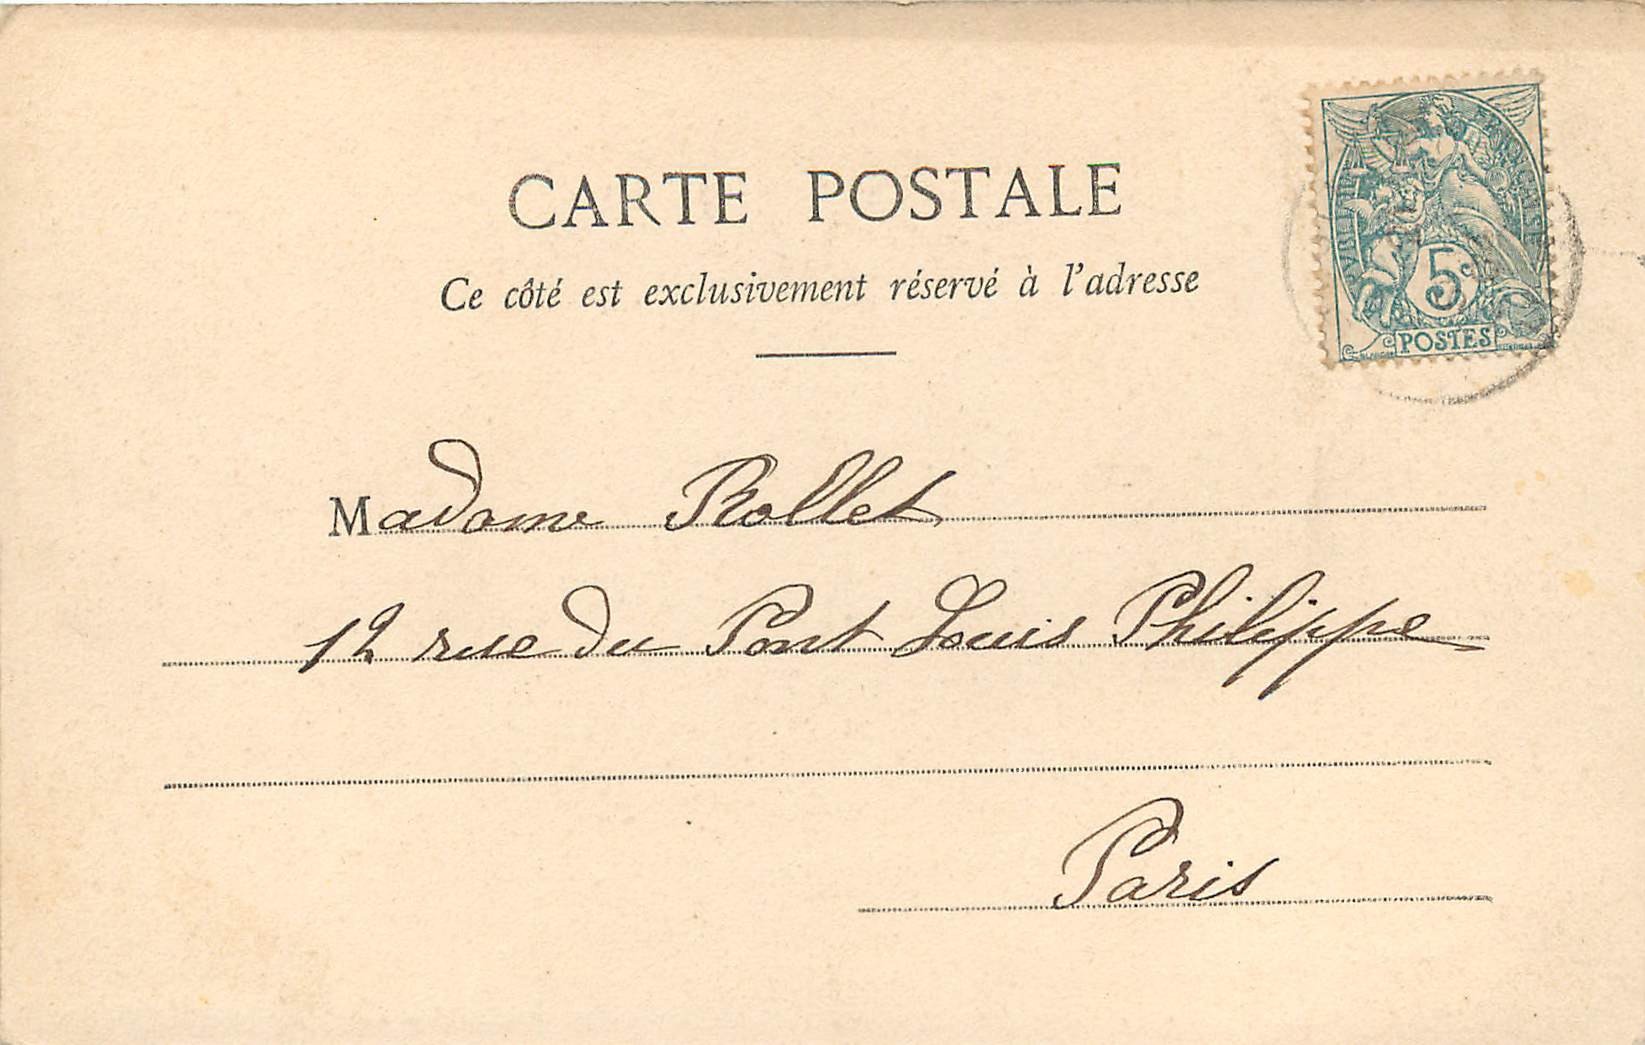 CARTE POSTALE
Ce côté est exclusivement réservé à l'adresse
5c
POSTES
Madame Rollet
12 rue du Pont Louis Philippe
Paris